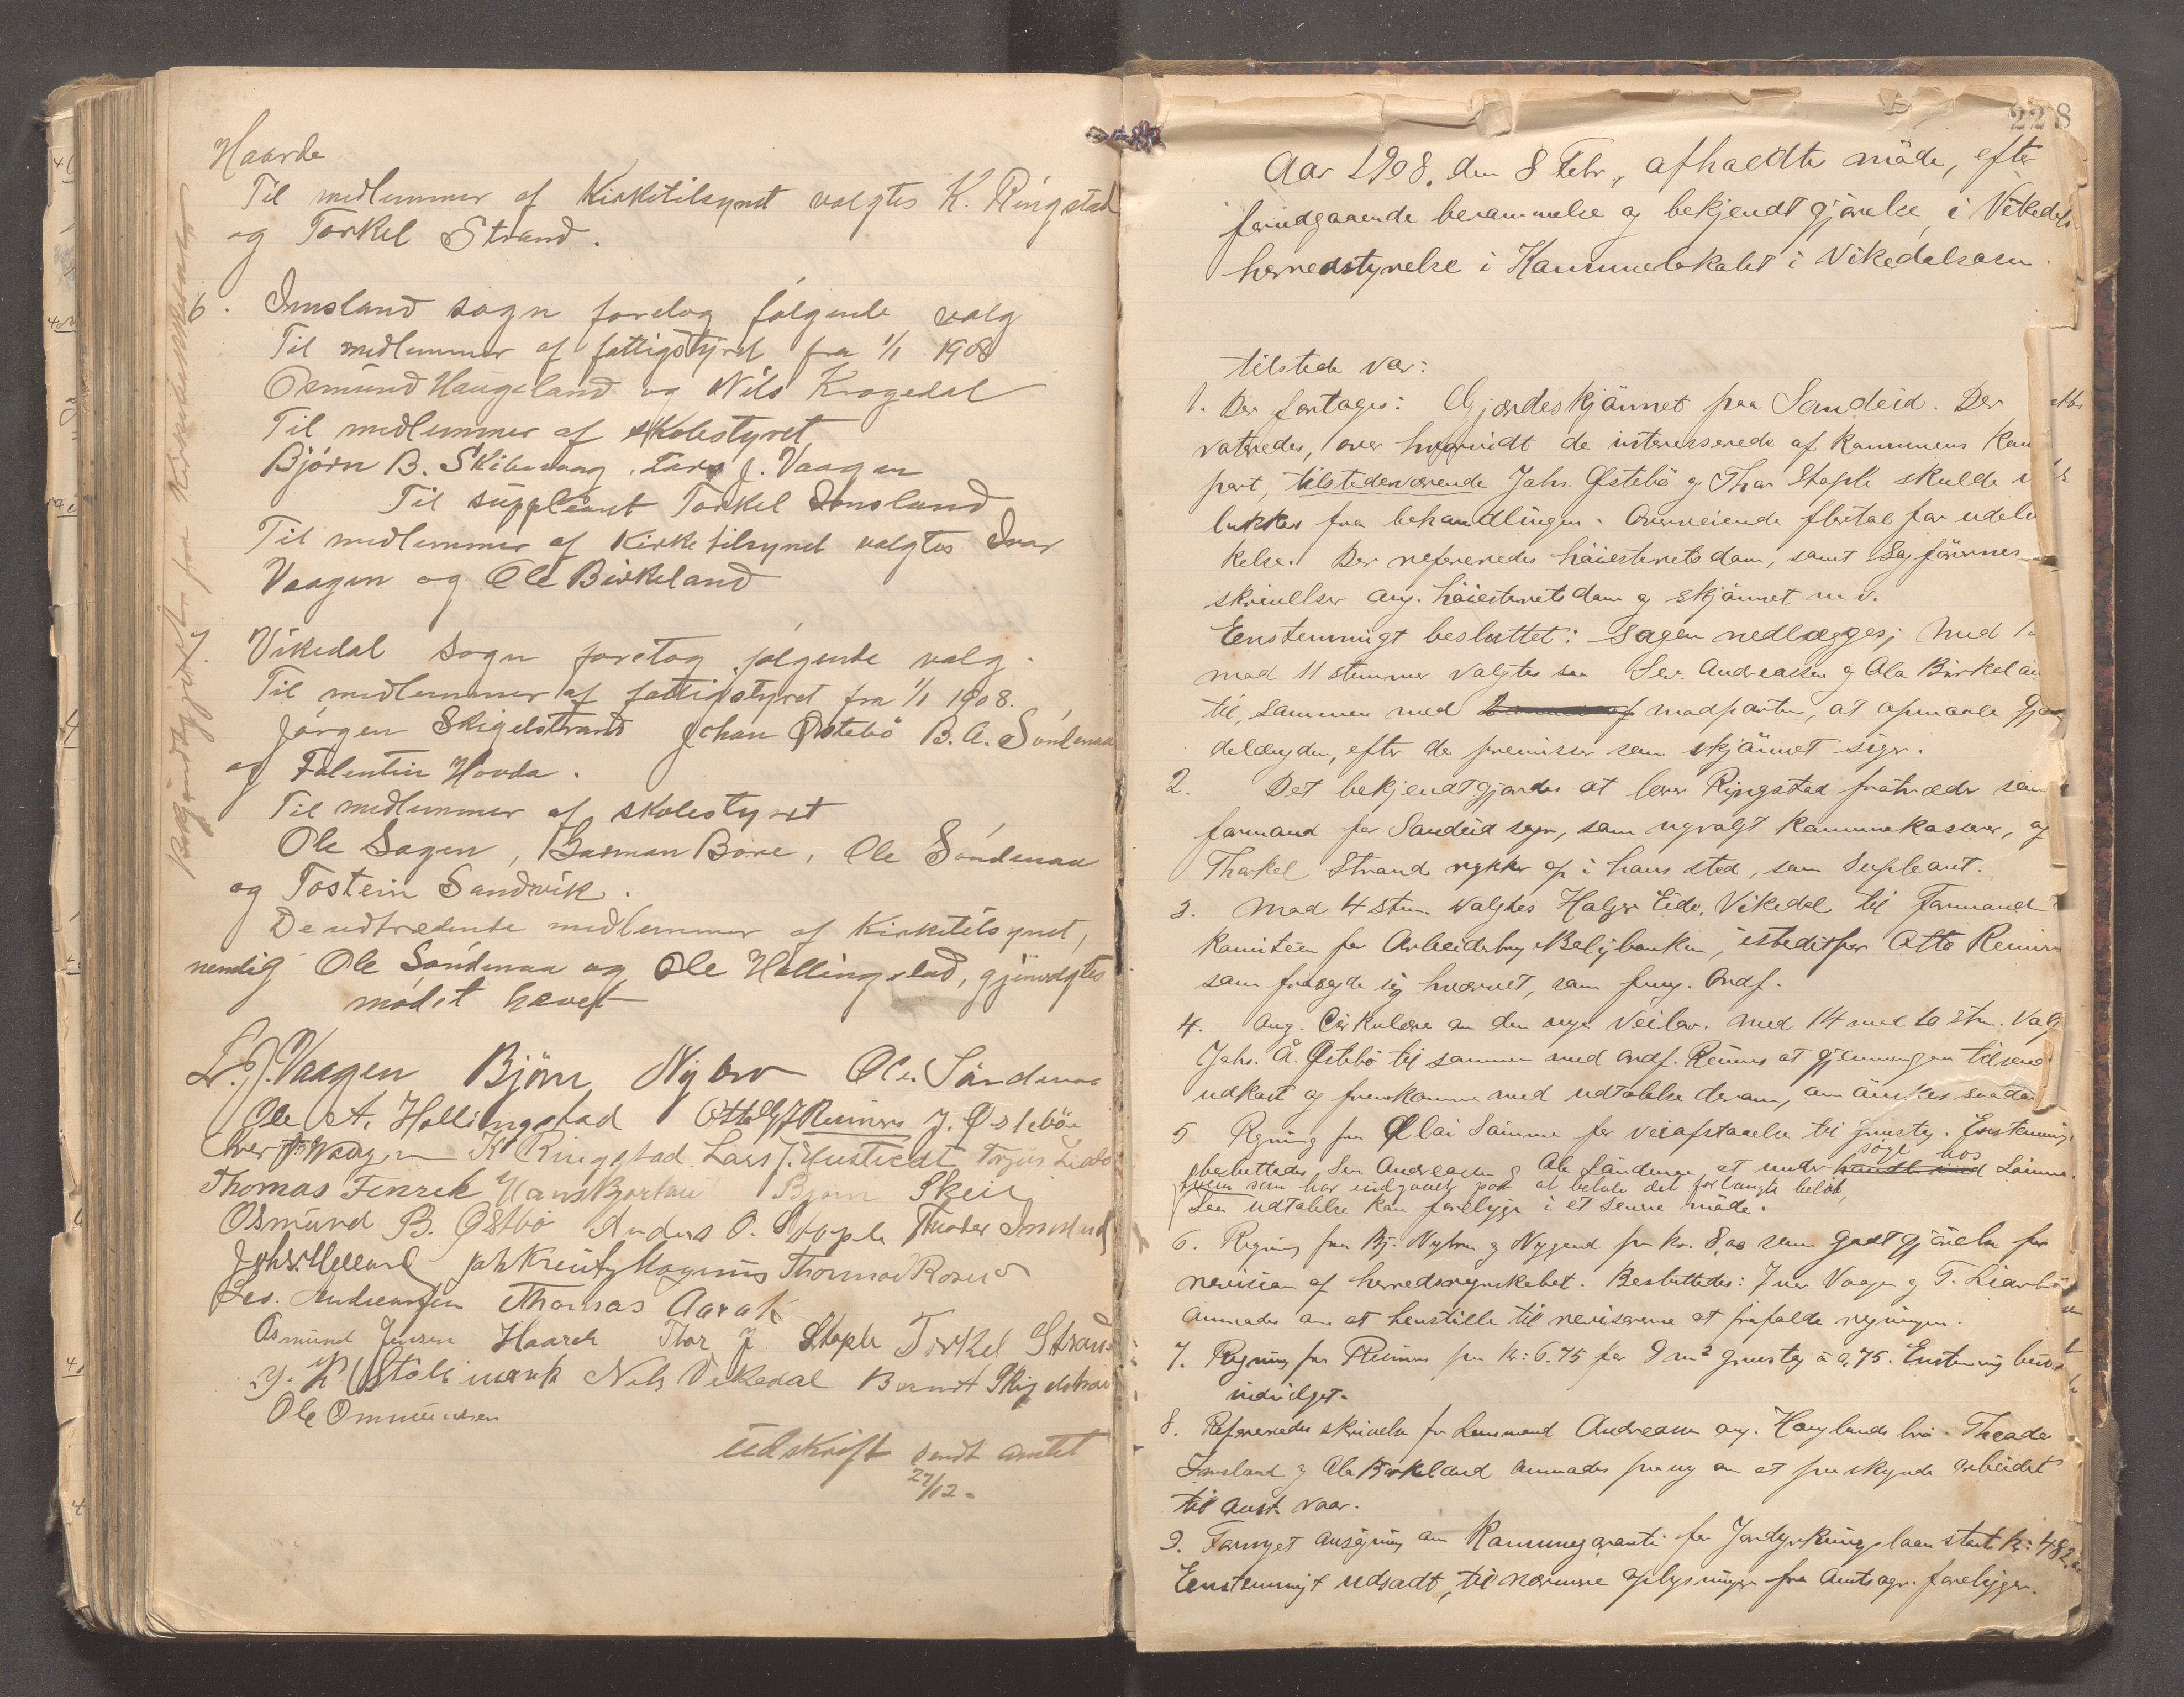 Haarde
Til medlemmer af Kirketilsynet valgtes K. Ringstad
og Torkel Strand.
6. Imsland sogn foretog følgende valg
Til medlemmer af fattigstyret fra 1/1 1908
Osmund Haugeland og Nils Krogedal
Til medlemmer af skolestyret
Bjørn B. Skibevaag, Lars J. Vaagen
Til suppleant Torkel Imsland
Til medlemmer af Kirketilsynet valgtes Ivar
Vaagen og Ole Birkeland
7. Vikedal sogn foretog følgende valg.
Til medlemmer af fattigstyret fra 1/1 1908.
Jørgen Skigelstrand Johan Østebö B. A. Søndenaa
og Falentin Hovda.
Til medlemmer af skolestyret
Ole Sagen, Rasmus Bore, Ole Søndenaa
og Tostein Sandvik.
De udtrædende medlemmer af Kirketilsynet,
nemlig Ole Søndenaa og Ole Hollingstad, gjenvalgtes
mødet hævet
L. J. Vaagen Bjørn Nybru Ole Søndenaa
Ole A. Hollingstad Otto Reimers J. Østebö
Iver Vaagen K Ringstad Lars J. Torjus Liarbö
Thomas Fenrek Hans Bjørn Skeie
Osmund B. Østbö Anders O. Stople Theodor Imsland
Joh. Kreutz Magnus Thormod
Sev. Andreassen Thomas Aarak
Osmund Jensen Haarde Thor J Stople Torkel Strand
Nils Vikedal Berndt Skigelstrand
Ole Ommundsen
Udskrift sendt amtet
27/12.
Bekjendtgjort for Kirkedepartementet
228
Aar 1908, den 8 Febr., afholdtes møde, efter
forudgaaende berammelse og bekjendtgjørelse, i Vikedals
herredstyrelse i Kommunelokalet i Vikedalsosen.
tilstede var:
1. Der foretages: Gjærdeskjønnet paa Sandeid. Der
voteredes, over hvorvidt de interesserede af Kommunens Kon
part, tilstedeværende Johs. Østebö og Thor Stople skulde u
lukkes fra behandlingen. Overveiende flertal for udelu
kelse. Der refereredes høiesteretsdom, samt Sagførernes
skrivelser ang. høiesteretsdom og skjønnet m. v.
Eenstemmigt besluttet: Sagen nedlægges; med 1
mod 11 stemmer valgtes saa Sev. Andreasen og Ole Birkelan
til, sammen med modparten, at opmaale Gjær
delængden, efter de premisser som skjønnet siger.
2. Det bekjendtgjordes at lærer Ringstad fratræder som
formand for Sandeid sogn, som nyvalgt Kommunekasserer, og
Thorkel Strand rykker op i hans sted, som Supleant.
3. Mod 4 stem valgtes Holger Eide, Vikedal til Formand
Komiteen for Arbeiderbrug & Boligbanken, istedetfor Otto Reimers
som frasagde sig hvervet, som fung. Ordf.
4. Ang. Cirkulære om den nye Veilov. Med 14 mod 10 stm. valg
Johs. A. Østebö til sammen med ordf. Reimers at gjennemgaa tilsend
udkast og fremkomme med udtalelse derom, om ønskes saada
5 Regning fra Olai Sømme for veiafstaaelse til grustag. Eenstemmig
besluttedes, Sev. Andreasen og Ole Søndenaa, at underhandle med søge hos Sømme
hvem som har indgaaet paa at betale det forlangte beløb,
saa udtalelse kan foreligge i et senere møde.
6. Regning fra Bj. Nybru og Nygaard paa kr. 8,00 som godtgjørelse for
revision af herredsregnskabet. Besluttedes: Iver Vaage og T. Liarbö
anmodes om at henstille til revisorerne at frafalde regningen.
7. Regning fra Reimers paa kr: 6.75 for 9 m2 grustag à 0,75. Enstemmig bev
indvilget.
8. Refereredes skrivelse fra Lensmand Andreasen ang. Hauglands bro. Theodor
Imsland og Ole Birkeland anmodes paany om at paaskynde arbeidet
til anst. vaar.
9. Fornyet ansøgning om Kommunegaranti for Jorddyrkningslaan stort kr: 482,
Eenstemmigt udsadt, til nærmere oplysninger fra Amtsagr. foreligger.